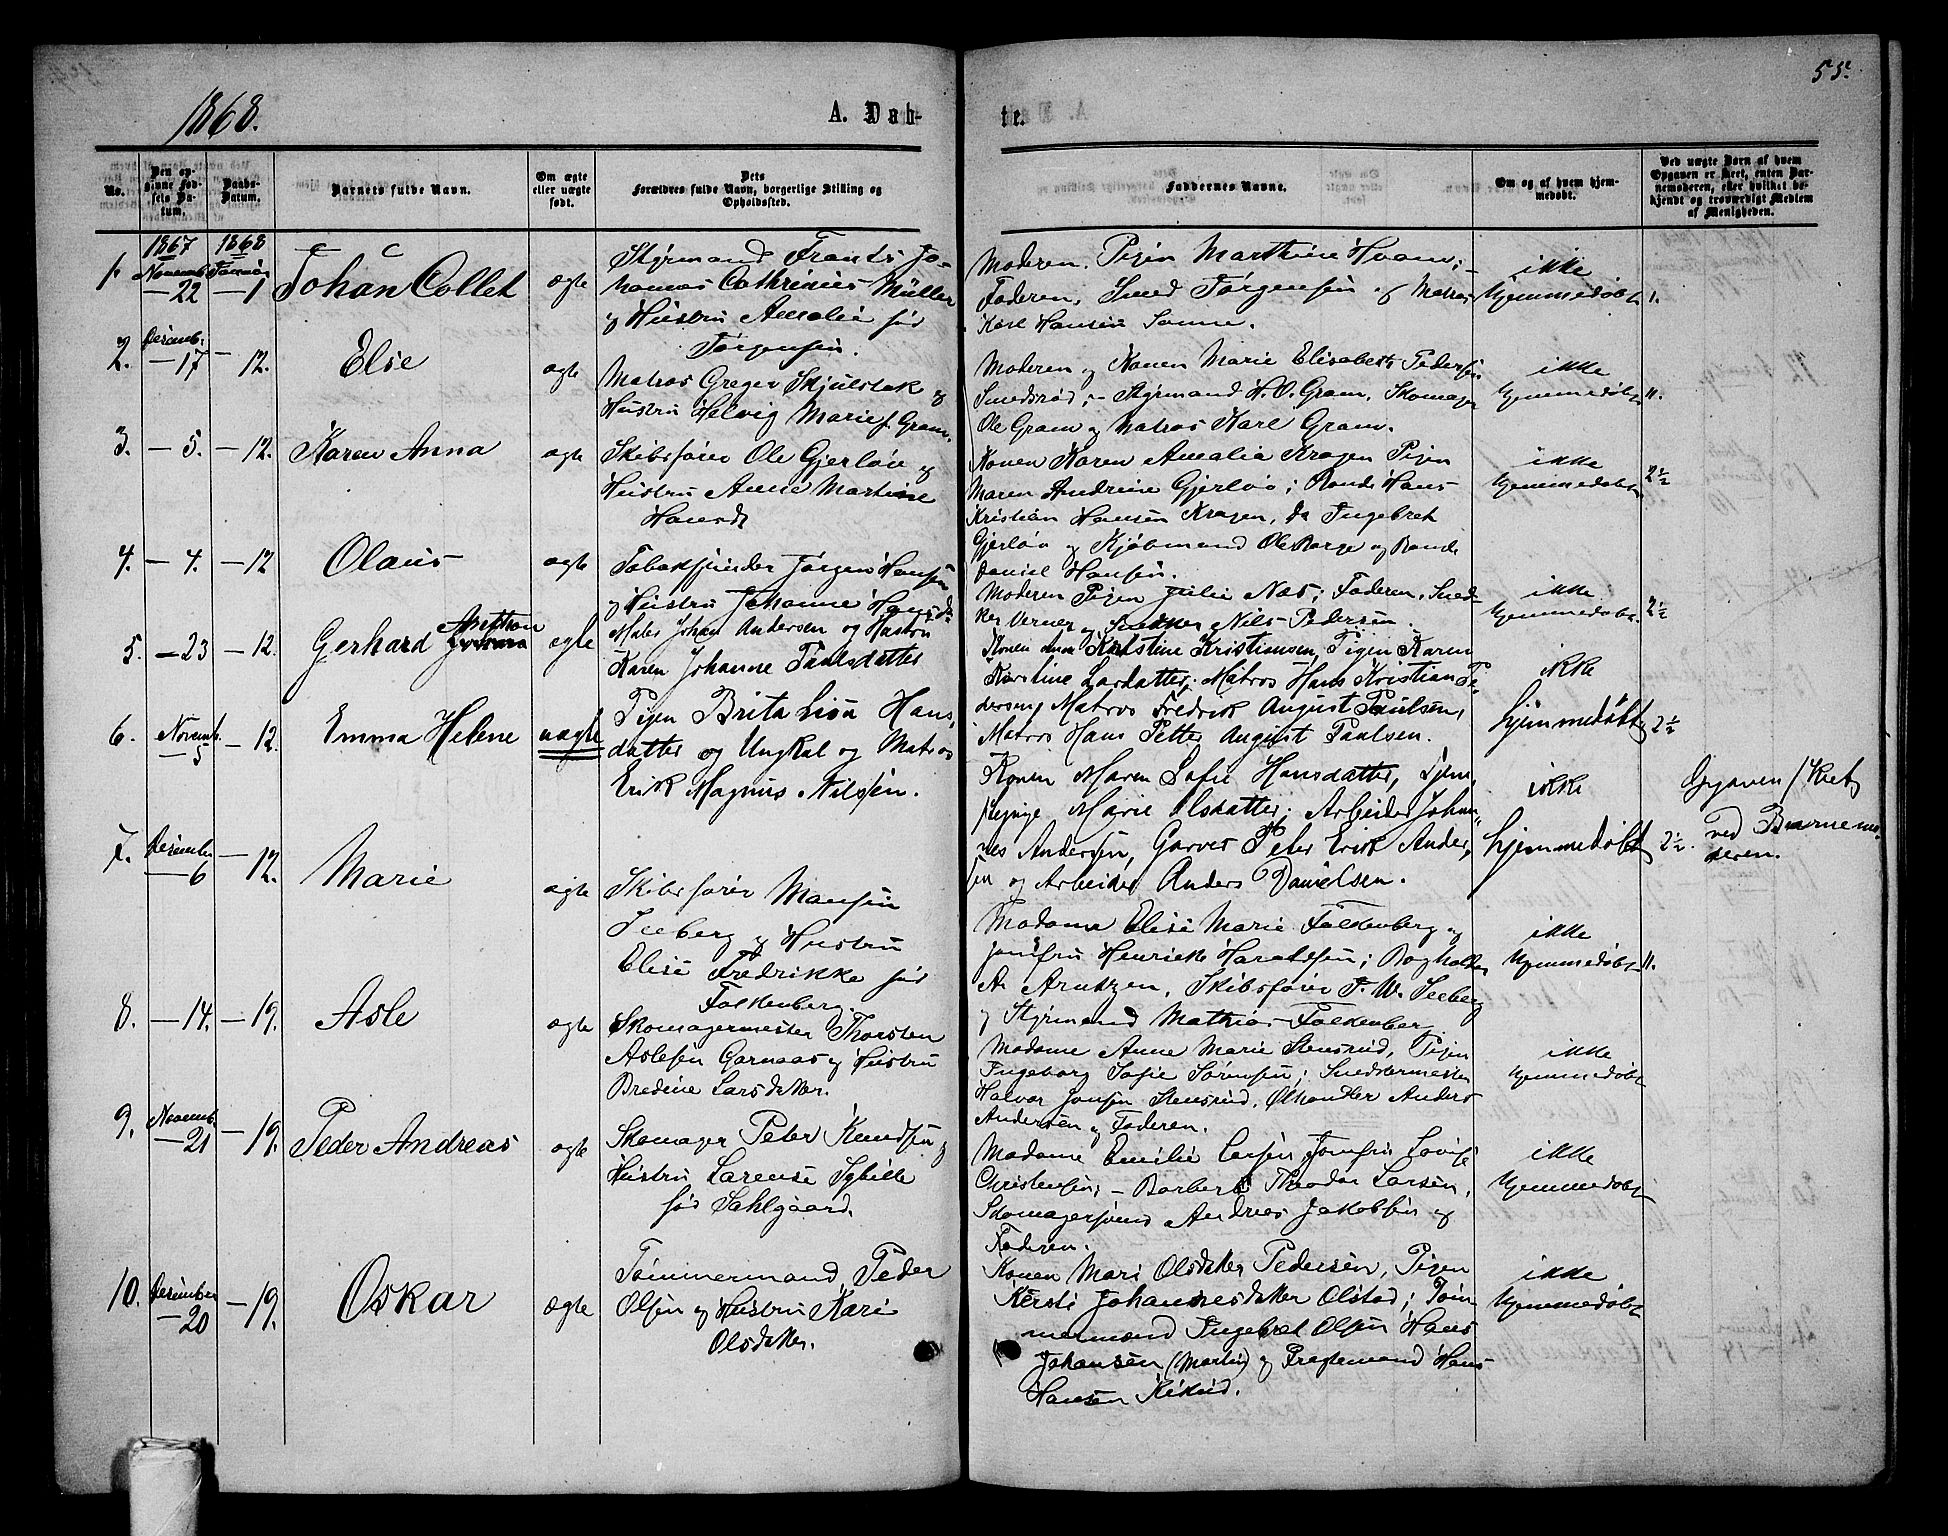 1868.
A. Døb-
te.
55.
No.
Den opgivne Fødsels Datum.
Daabs-Datum.
Barnets fulde Navn.
Om ægte eller uægte født.
Dets Forældres fulde Navn, borgerlige Stilling og Opholdssted.
Faddernes Navne.
Om og af hvem hjemmedøbt.
Ved uægte Børn af hvem Opgaven er skeet, enten Barnemoderen, eller hvilket bekjendt og troværdigt Medlem af Menigheden.
1. 1867 Novemb. 22 1868 Januar 1 Johan Collet ægte
Styrmand Frants Jo-
hannes Cathrinus Müller
og Hustru Amalie fød
Jørgensen.
Moderen. Pigen Marthine Hvam;
Faderen, Smed Jørgensen og Matros
Karl Hansen Sonne.
ikke
hjemmedøbt 1.
2. Desemb. 17 - 12. Else ægte
Matros Greger Skjulstak og
Hustru Helvig Marie f. Gram.
Moderen og Konen Marie Elisabeth Pedersen
Smedsrød; - Styrmand H. O. Gram, Skomager
Ole Gram og Matros Karl Gram.
ikke
hjemmedøbt 11.
3. - 5. - 12. Karen Anna ægte
Skibsfører Ole Gjerløw og
Hustru Anne Martine
Hansdt
Konen Karen Amalia Kragen Pigen
Maren Andrine Gjerløw; Hans
Kristian Hansen Kragen, do Ingebret
Gjerløw og Kjøbmand Ole Borge og
Daniel Hansen.
ikke
hjemmedøbt 2½
4. - 4. - 12 Olaus ægte
Tobakspinder Jørgen Hansen
og Hustru Johanne Hansd.
Moderen Pigen Julie Næs; Faderen, Sned-
ker Verner og Snedker Nils Pedersen.
ikke
hjemmedøbt. 2½
5. - 23 - 12. Gerhard Anthon ægte
Matos Johan Andersen og Hustru
Karen Johanne Paulsdatter
Konen Anne Kristine Kristiansen, Pigen Karen
Karstine Larsdatter; Matros Hans Kristian Pe-
dersen, Matros Fredrik August Paulsen,
Matros Hans Petter August Paulsen.
ikke
hjemmedøbt 2½
6. Novemb. 5 - 12. Emma Helene uægte
Pigen Brita Lisa Hans-
datter og Ungkal og Matros
Erik Magnus Nilsen.
Konen Maren Sofie Hansdatter, Tjene-
stepige Marie Olsdatter; Arbeider Johan-
nes Andersen, Garver Peter Erik Ander-
sen og Arbeider Anders Danielsen.
ikke
hjemmedøbt 2½.
Opgaven skeet
ved Barnemo-
deren.
7. Desember 6 - 12. Marie ægte
Skibsfører Monsen
Seeberg og Hustru
Elise Fredrikke fød
Falkenberg.
Madame Elise Marie Falkenberg og
Jomfru Henriette Haraldsen; Bogholder
A. Arntzen, Skibsfører F. W. Seeberg
og Styrmand Mathias Falkenberg
ikke
hjemmedøbt 11.
8. - 14. - 19. Asle ægte
Skomagermester Thorsten
Aslesen Garnaas og Hustru
Bredine Larsdatter.
Madame Anne Marie Stensrud, Pigen
Ingeborg Sofie Sørensen; Smedermester
Halvor Jonsen Stensrud, Ølhandler Anders
Andersen og Faderen.
ikke
hjemmedøbt
9. Novemb. 21 - 19. Peder Andreas ægte
Skomager Peter Knudsen og
Hustru Larense Sybille
fød Sahlgaard.
Madame Emilie Larsen, Jomfru Lovise
Christensen; - Barber Theodor Larsen,
Skomagersvend Andreas Jakobsen og
Faderen.
ikke
hjemmedøbt
10. Desember 20 - 19. Oskar ægte
Tømmermand Peder
Olsen og Hustru Kari
Olsdatter.
Konen Mari Olsdatter Pedersen, Pigen
Kersti Johannesdatter Olstad; Tøm-
mermand Ingebret Olsen, Hans
Johansen (Martin) og Hans
Hansen
ikke
hjemmedøbt